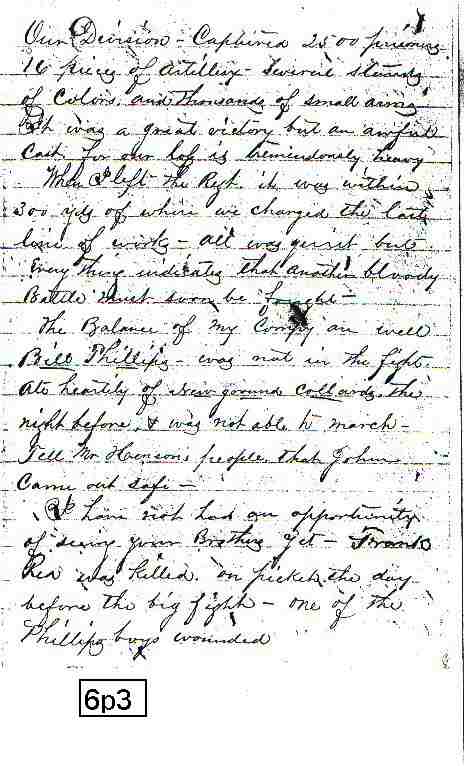 Our Division - Captured 2500 prisoners
16 pieces of Artillery - Several stands
of Colors, and thousands of small arms
It was a great victory but an awful
Cost for our loss is tremendously heavy
When I left the Regt. it was within
300 yds of where we charged the last
line of works - all was quiet but
Every thing indicates that another bloody
Battle must soon be fought -
The Balance of my Compy are well
Bill Phillips - was not in the fight.
Ate heartily of new ground collards the
night before, & was not able to march -
Tell Mr Hensons people that John
Came out safe -
I have not had an opportunity
of seeing your Brother yet - Frank
Rea was killed. on picket the day
before the big fight - one of the
Phillips boys wounded
6p3